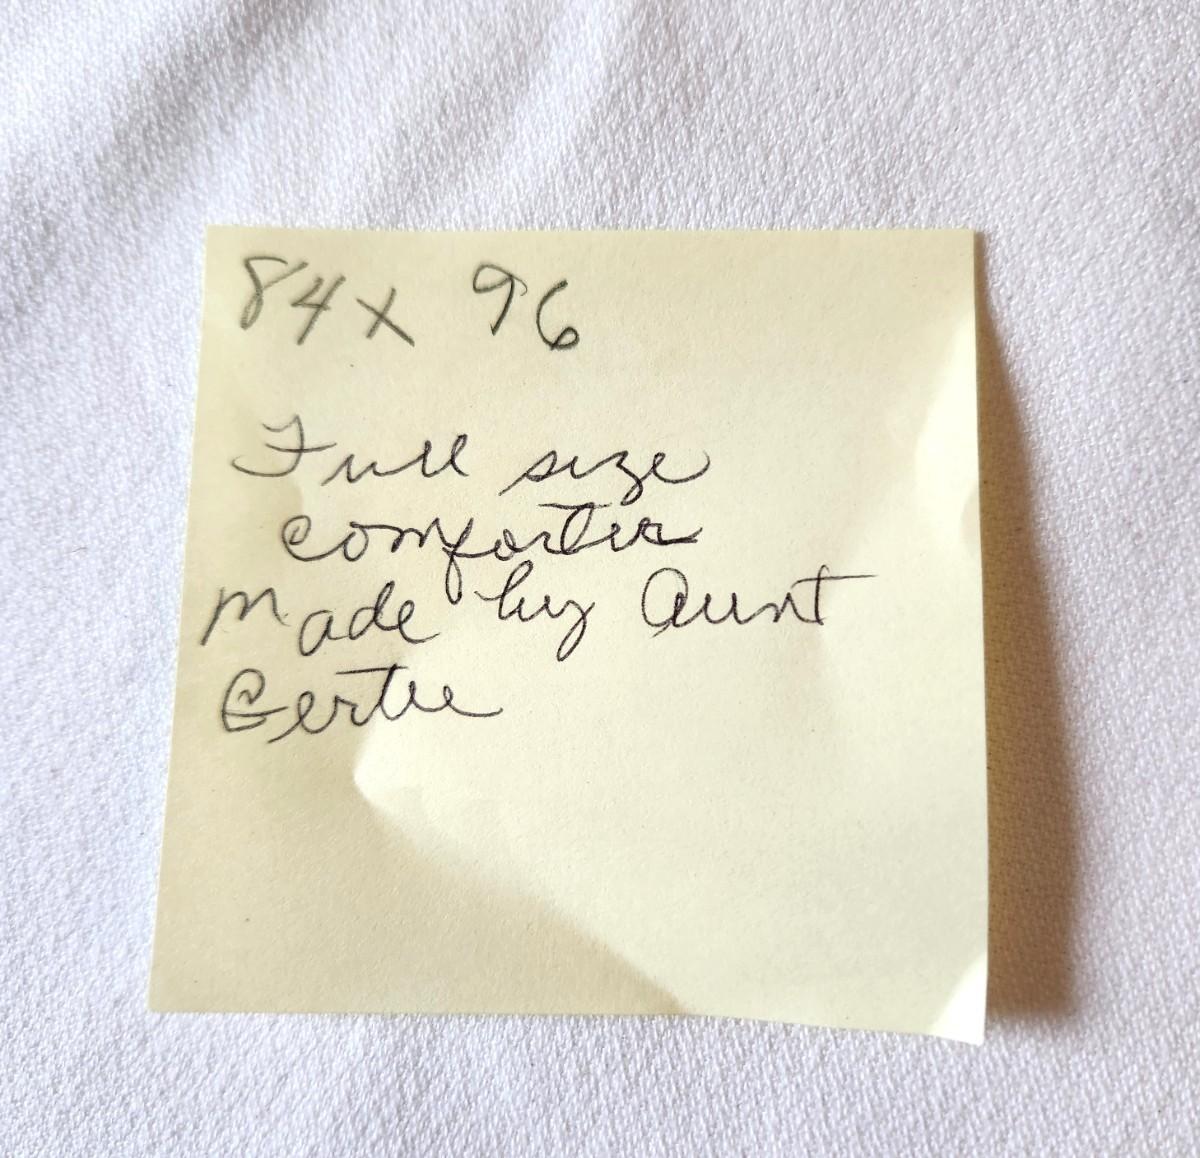 84 x 96
Full size
comforter
Made by Aunt
Gertie